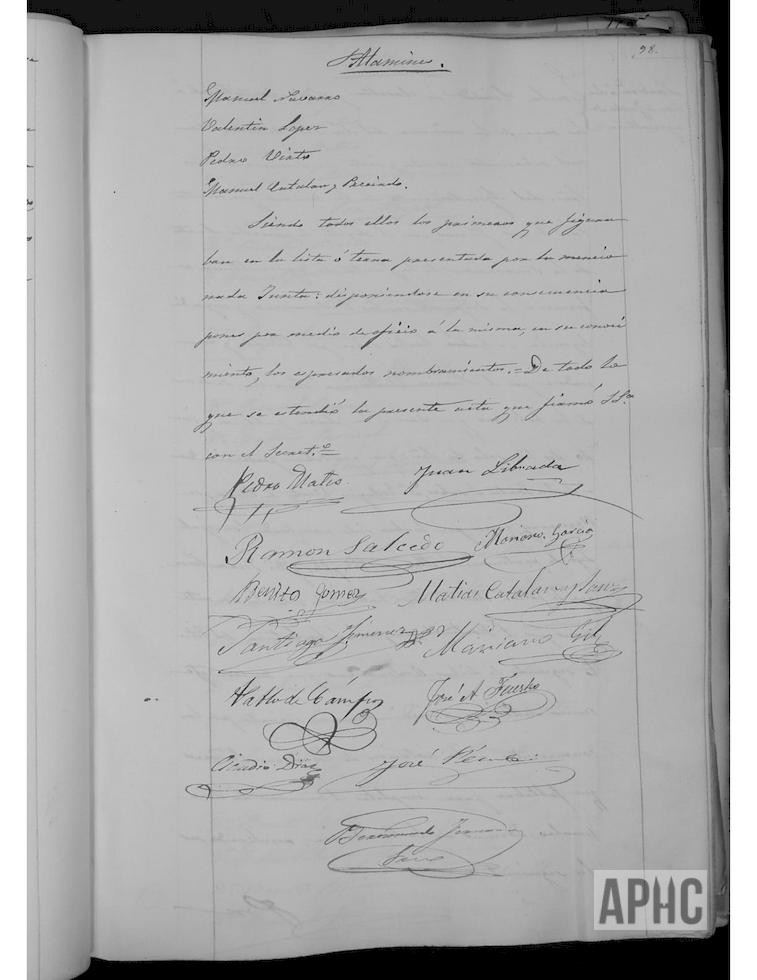 98.
Alamines.
Manuel Navarro
Valentin Lopez
Pedro
Manuel Catalan y Preciado.
Siendo todos ellos los primeros que figura
ban en la lista ó terna presentada por la mencio
nada Junta: disponiendose en su consecuencia
poner por medio de oficio á la misma, en su conoci
miento, los espresados nombramientos.= De todo lo
que se estendió la presente acta que firmó SSa
con el Secret.º=
Pedro Mateo Juan Librada
Ramon Salcedo Mariano Garcia
Benito Gomez Matias Catalan y
Santiago Jimenez Mariano Gil
Pablo de Campos José A. Fuertes
Claudio Diaz José
Bermundo
APHC